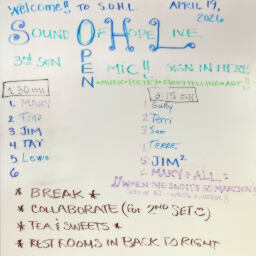 Welcome!! To S.O.H.L. APRIL 19, 2026
SOUND OF HOPE LIVE
3rd SUN OPEN MIC!! SIGN IN HERE
*MUSIC*POETRY*STORYTELLING*ART!!
1:30 2:15
1. MARY
2. Tino
3. JIM
4. TAY
5. Lewis
6
1. Sully
2. Terri
3. Sam
4. TERRE
5. JIM²
6. MARY + ALL:
"WHEN THE SAINTS GO MARCHIN'
* BREAK *
* COLLABORATE (for 2ND SET☺)
* TEA & SWEETS *
* REST ROOMS IN BACK TO RIGHT